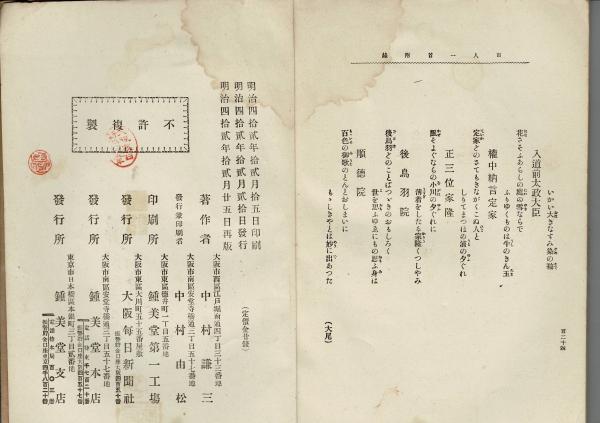 百人一首附録
入道前太政大臣
いかい大きなすみ染の袖
花さそふあらしの庭の雪ならで
ふりゆくものは牛のきん玉
權中納言定家
定家どのさてもきながくこぬ人と
しりてまつほの浦の夕ぐれ
正三位家隆
風そよぐならの小川の夕ぐれに
薄着をしたる家隆くつしやみ
後鳥羽院
後鳥羽どのことばつゞきのおもしろく
世を思ふゆゑにもの思ふ身は
順德院
百色の御歌のとんとおしまいに
もゝしきやとは妙に出あつた
(大尾)
百二十四
明治四拾貳年拾貳月拾五日印刷
明治四拾貳年拾貳月貳拾日發行
明治四拾貳年拾貳月廿五日再版
不許複製
著作者
大阪市西區江戶堀南通四丁目三十三番地
中村謙三
發行兼印刷者
大阪市南區安堂寺橋通三丁目五十七番地
中村由松
印刷所
鍾美堂第一工場
發行所
大阪市東區大川町五十五番屋敷
大阪每日新聞社
發行所
大阪市南區安堂寺橋通三丁目五十七番地
鍾美堂本店
發行所
東京市日本橋區本銀町三丁目貳番地
鍾美堂支店